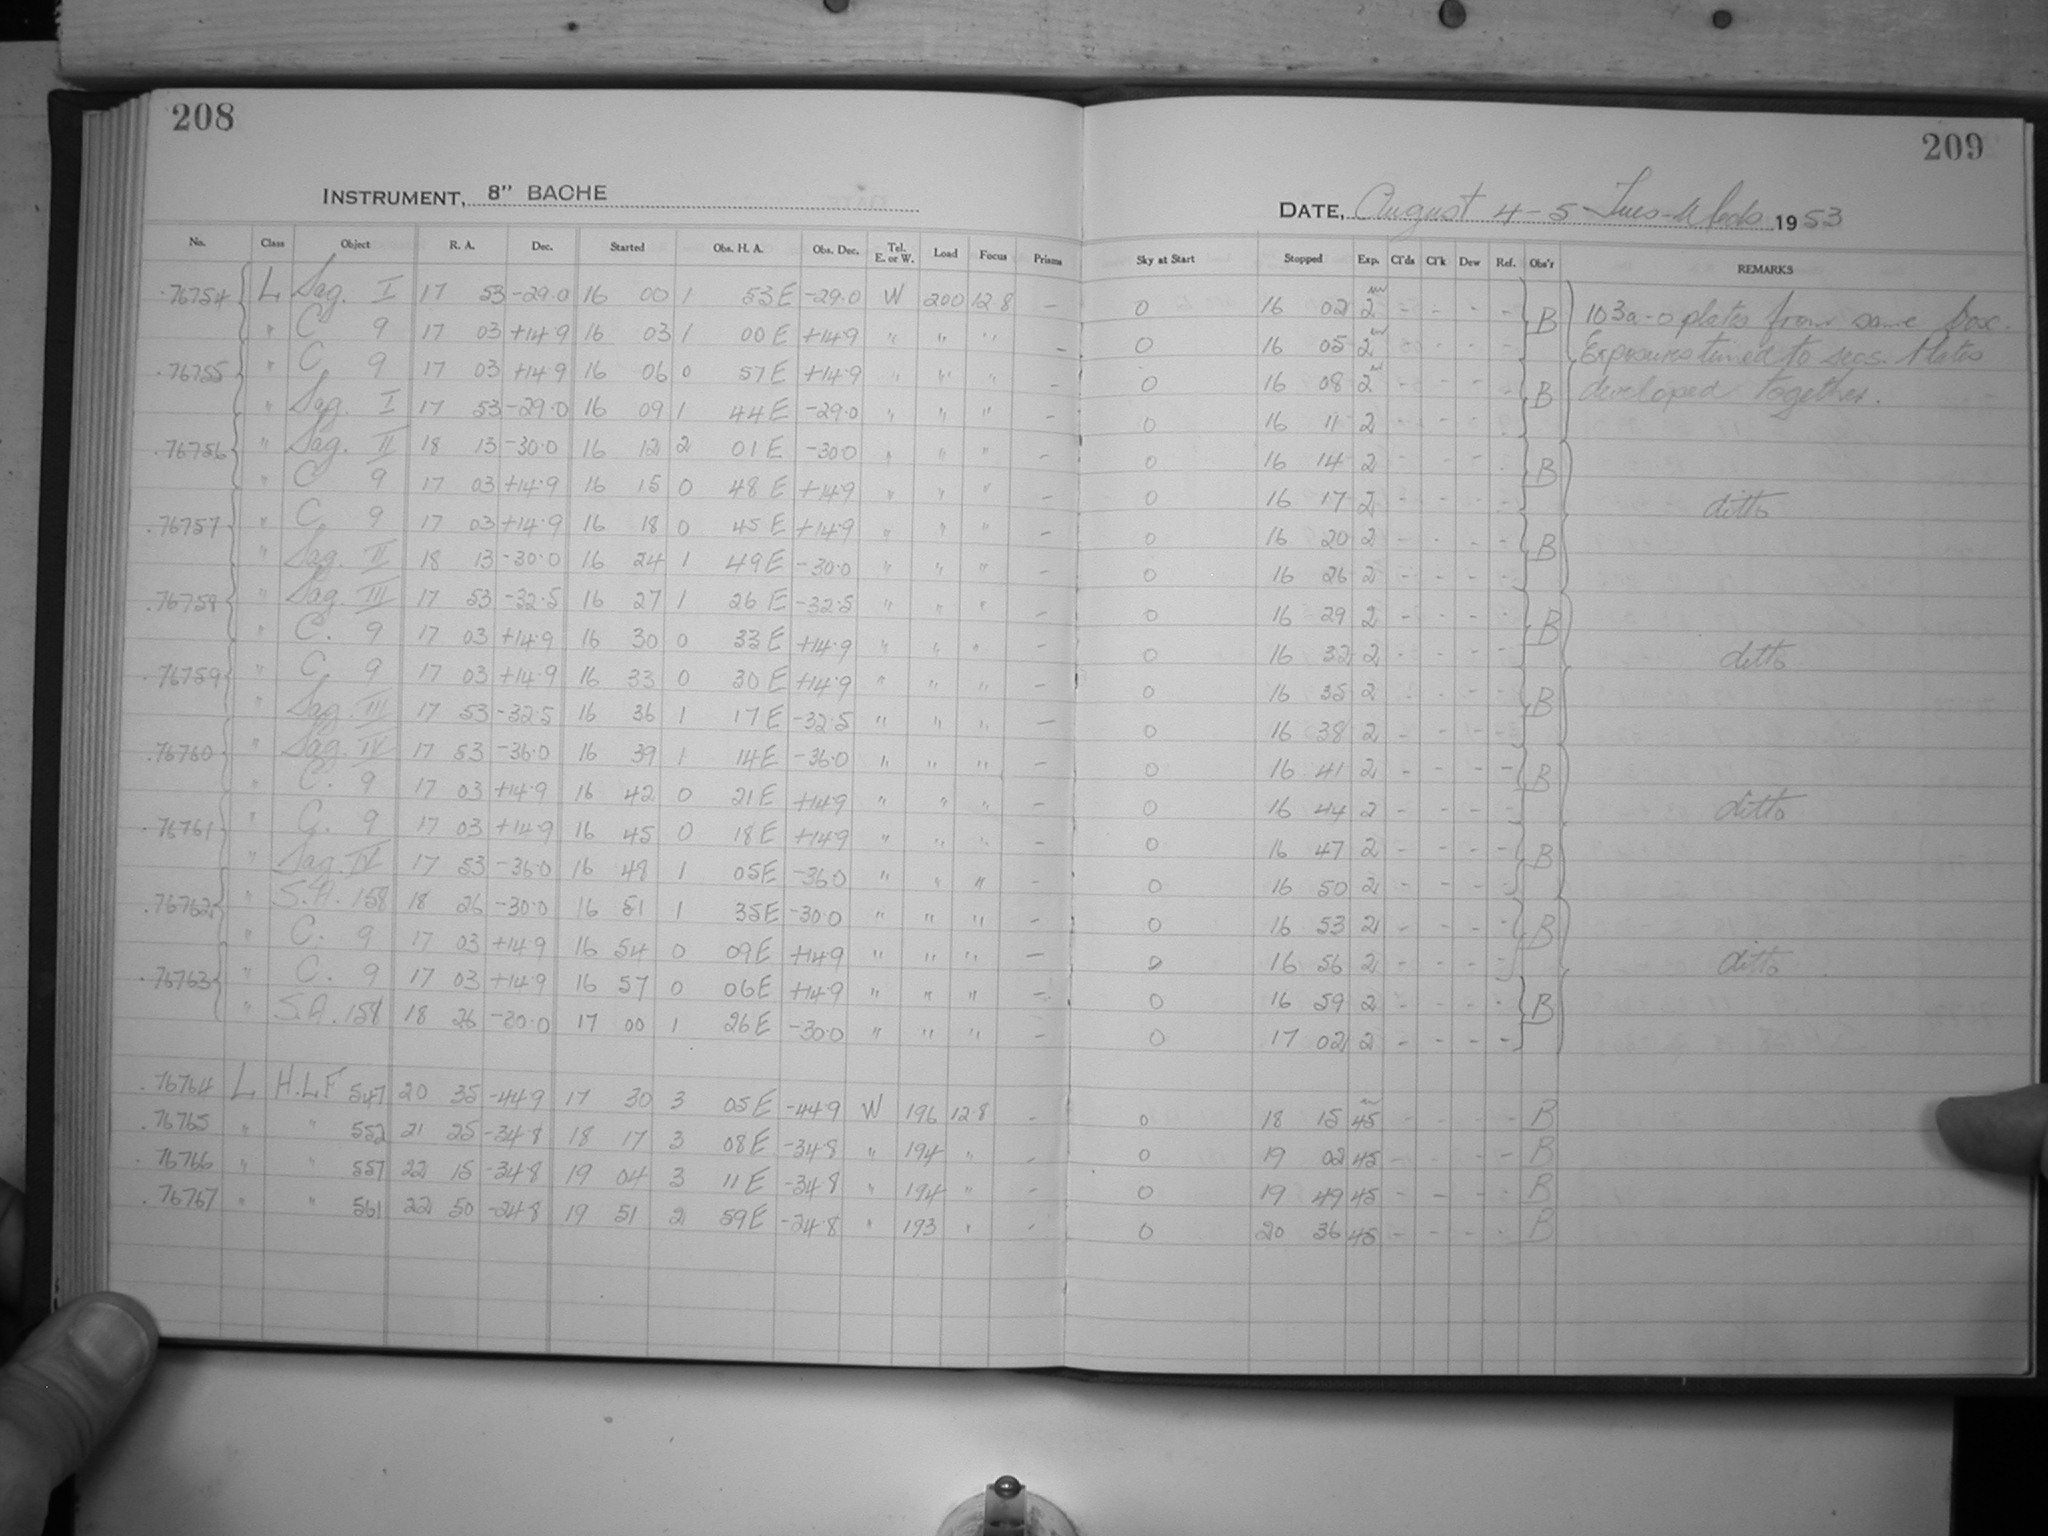 208
209
INSTRUMENT, 8" BACHE
DATE, August 4-5 Tues-Weds 1953
No. Class Object R. A. Dec. Started Obs. H. A. Obs. Dec. Tel. E. or W. Load Focus Prisms Sky at Start Stopped Exp. Cl'ds Cl'k Dew Ref. Obs'r REMARKS
76754 L Sag. I 17 53 -29.0 16 00 1 53 E -29.0 W 200 12.8 - 0 16 02 2 - - - - B 103a-o plates from same box.
" C 9 17 03 +14.9 16 03 1 00 E +14.9 " " " - 0 16 05 2 - - - - Exposures timed to secs. Plates
76755 " C 9 17 03 +14.9 16 06 0 57 E +14.9 " " " - 0 16 08 2 - - - - B developed together.
" Sag. I 17 53 -29.0 16 09 1 44 E -29.0 " " " - 0 16 11 2 - - - -
76756 " Sag. II 18 13 -30.0 16 12 2 01 E -30.0 " " " - 0 16 14 2 - - - - B
" C 9 17 03 +14.9 16 15 0 48 E +14.9 " " " - 0 16 17 2 - - - - ditto
76757 " C 9 17 03 +14.9 16 18 0 45 E +14.9 " " " - 0 16 20 2 - - - - B
" Sag. II 18 13 -30.0 16 24 1 49 E -30.0 " " " - 0 16 26 2 - - - -
76758 " Sag. III 17 53 -32.5 16 27 1 26 E -32.5 " " " - 0 16 29 2 - - - - B
" C. 9 17 03 +14.9 16 30 0 33 E +14.9 " " " - 0 16 32 2 - - - - ditto
76759 " C 9 17 03 +14.9 16 33 0 30 E +14.9 " " " - 0 16 35 2 - - - - B
" Sag. III 17 53 -32.5 16 36 1 17 E -32.5 " " " - 0 16 38 2 - - - -
76760 " Sag. IV 17 53 -36.0 16 39 1 14 E -36.0 " " " - 0 16 41 2 - - - - B
" C. 9 17 03 +14.9 16 42 0 21 E +14.9 " " " - 0 16 44 2 - - - - ditto
76761 " C. 9 17 03 +14.9 16 45 0 18 E +14.9 " " " - 0 16 47 2 - - - - B
" Sag. IV 17 53 -36.0 16 48 1 05 E -36.0 " " " - 0 16 50 2 - - - -
76762 " S.A. 158 18 26 -30.0 16 51 1 35 E -30.0 " " " - 0 16 53 2 - - - - B
" C. 9 17 03 +14.9 16 54 0 09 E +14.9 " " " - 0 16 56 2 - - - - ditto
76763 " C. 9 17 03 +14.9 16 57 0 06 E +14.9 " " " - 0 16 59 2 - - - - B
" S.A. 158 18 26 -30.0 17 00 1 26 E -30.0 " " " - 0 17 02 2 - - - -
76764 L H.L.F 547 20 35 -44.9 17 30 3 05 E -44.9 W 196 12.8 - 0 18 15 45 - - - - B
76765 " " 552 21 25 -34.8 18 17 3 08 E -34.8 " 194 " - 0 19 02 45 - - - - B
76766 " " 557 22 15 -34.8 19 04 3 11 E -34.8 " 194 " - 0 19 49 45 - - - - B
76767 " " 561 22 50 -24.8 19 51 2 59 E -24.8 " 193 " - 0 20 36 45 - - - - B